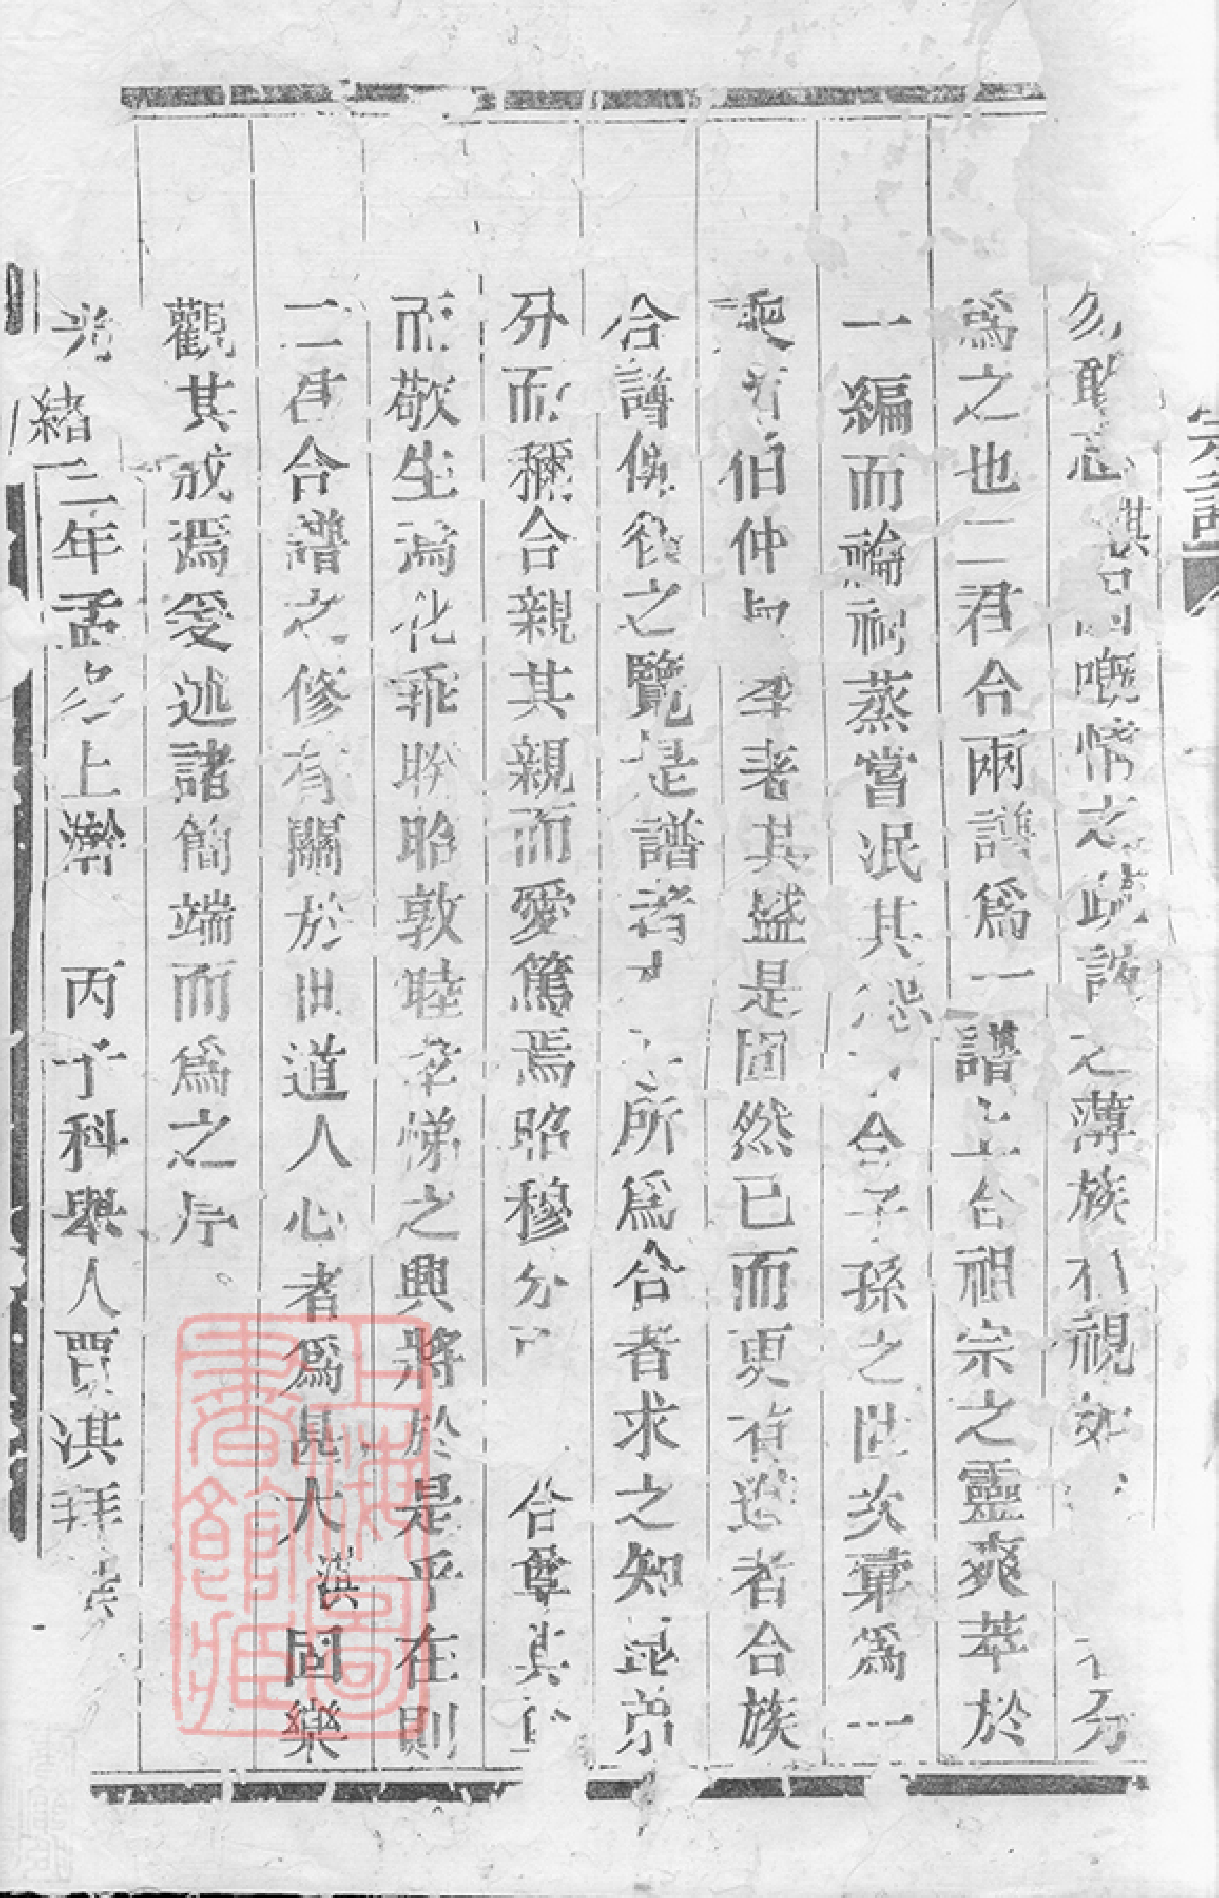 勿敢忘淇曰嘅情之疏誼之薄族不視如
為之也二君合兩譜為一譜淇上合祖宗之靈爽萃於
一編而論祠蒸嘗泯其怨合子孫之世次彙為一
爽者伯仲者其盛是固然已而更有進者合族
合譜俟後之覽是譜者所為合者求之知昆弟
分而稱合親其親而愛篤焉昭穆分合尊其
而敬生焉化乖睽昭敦睦孝悌之興將於是乎在則
二君合譜之修有關於世道人心者為甚大淇固樂
觀其成焉爰述諸簡端而為之序。
光緒二年孟冬上澣 丙子科舉人賈淇拜
上海圖書館藏